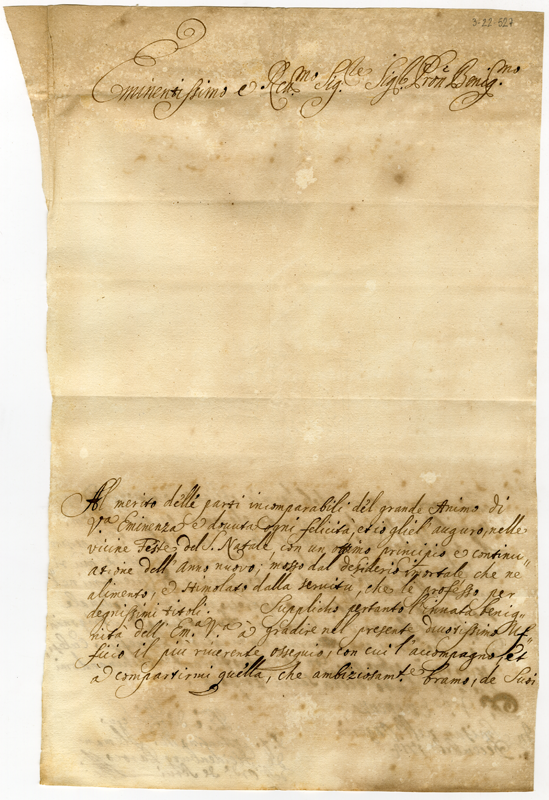 3-22-527
Eminentissimo e Reu.mo Sig.re Sig.re Pron Benig.mo
Al merito delle parti incomparabili del grande Animo di
V.a Eminenza è douuta ogni felicità, et io gliel' auguro, nelle
vicine Feste del S. Natale, con un ottimo principio e continu
atione dell' anno nuouo; mosso dal desiderio che ne
alimento, e stimolato dalla seruitù, che le professo per
degnissimi titoli. Supplicho pertanto l'innata benig=
nità dell' Em.a V.a à gradire nel presente diuotissimo Uf=
ficio il più riuerente ossequio, con cui l'accompagno, et
à compartirmi quella, che ambiziosam.te bramo, de Suoi